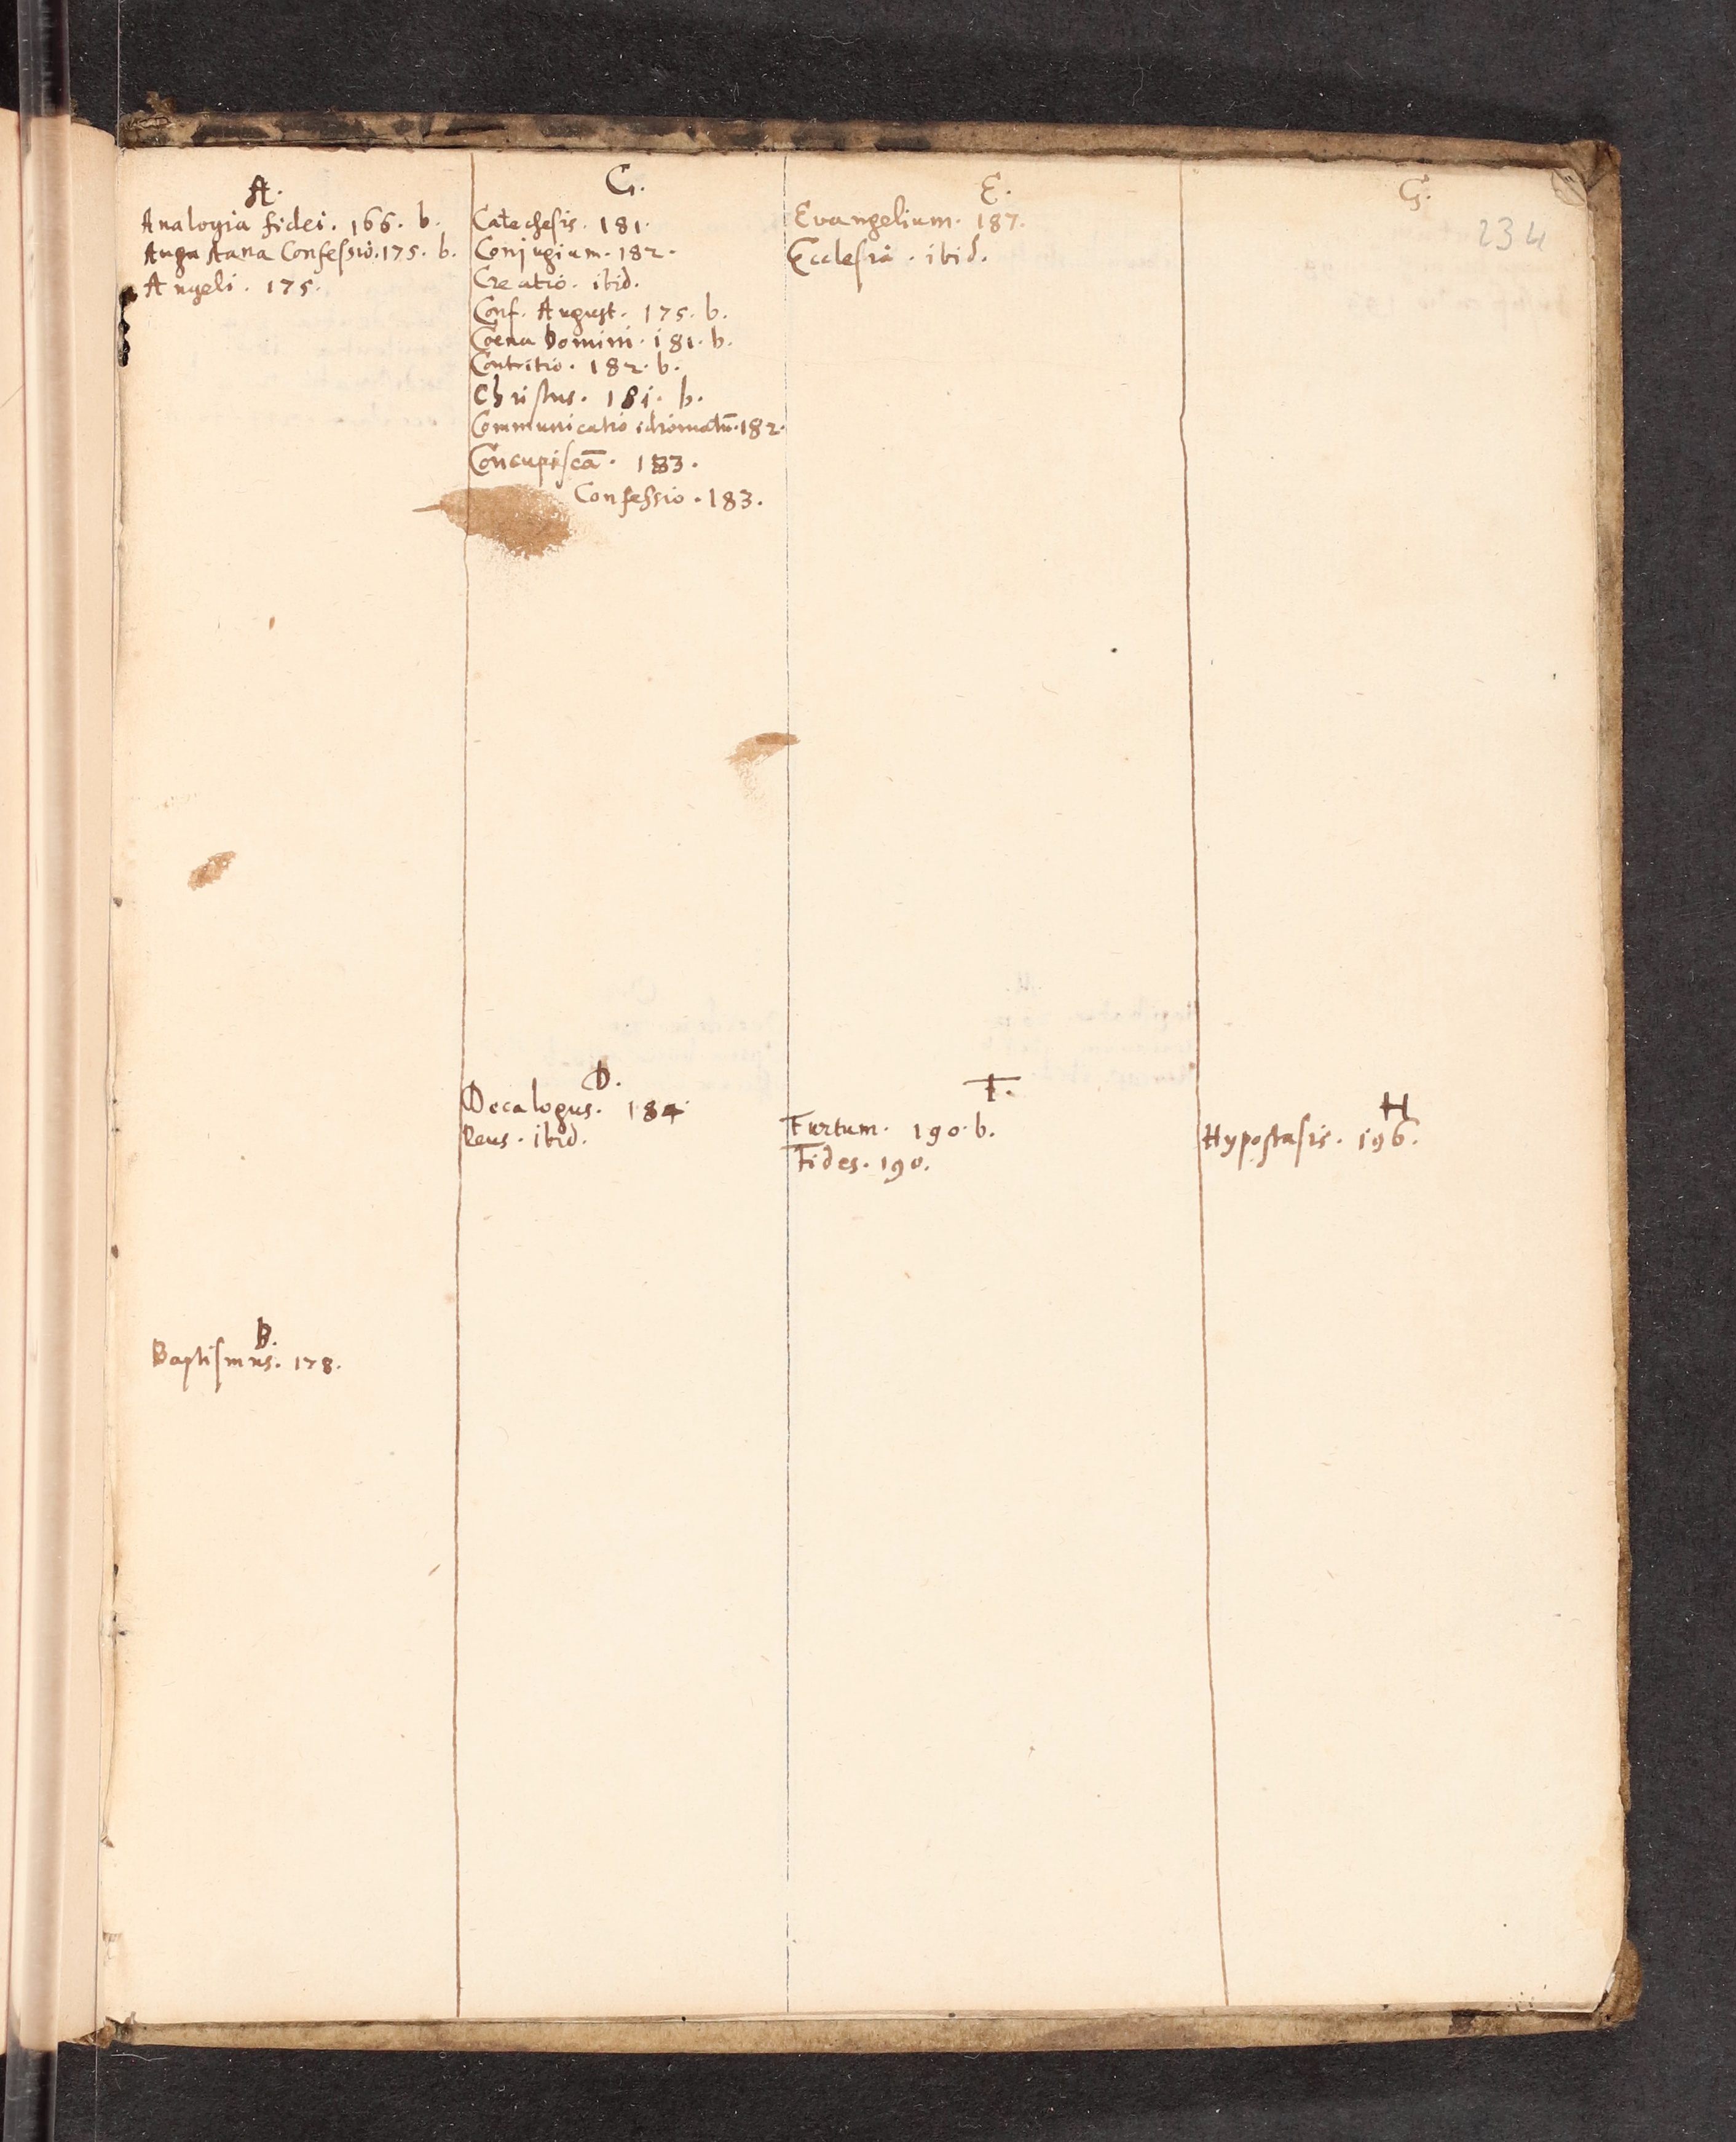 A.
Analogia fidei. 166. b.
Augustana Confessio. 175. b.
Angeli. 175.
B.
Baptismus. 178.
C.
Catechesis. 181.
Conjugium. 182.
Creatio. ibid.
Conf. August. 175. b.
Coena Domini. 181. b.
Contritio. 182. b.
Christus. 181. b.
Communicatio idiomatū. 182.
Concupiscā. 183.
Confessio. 183.
D.
Decalogus. 184.
Deus. ibid.
E.
Evangelium. 187.
Ecclesia. ibid.
F.
Furtum. 190. b.
Fides. 190.
G.
234
H
Hypostasis. 196.